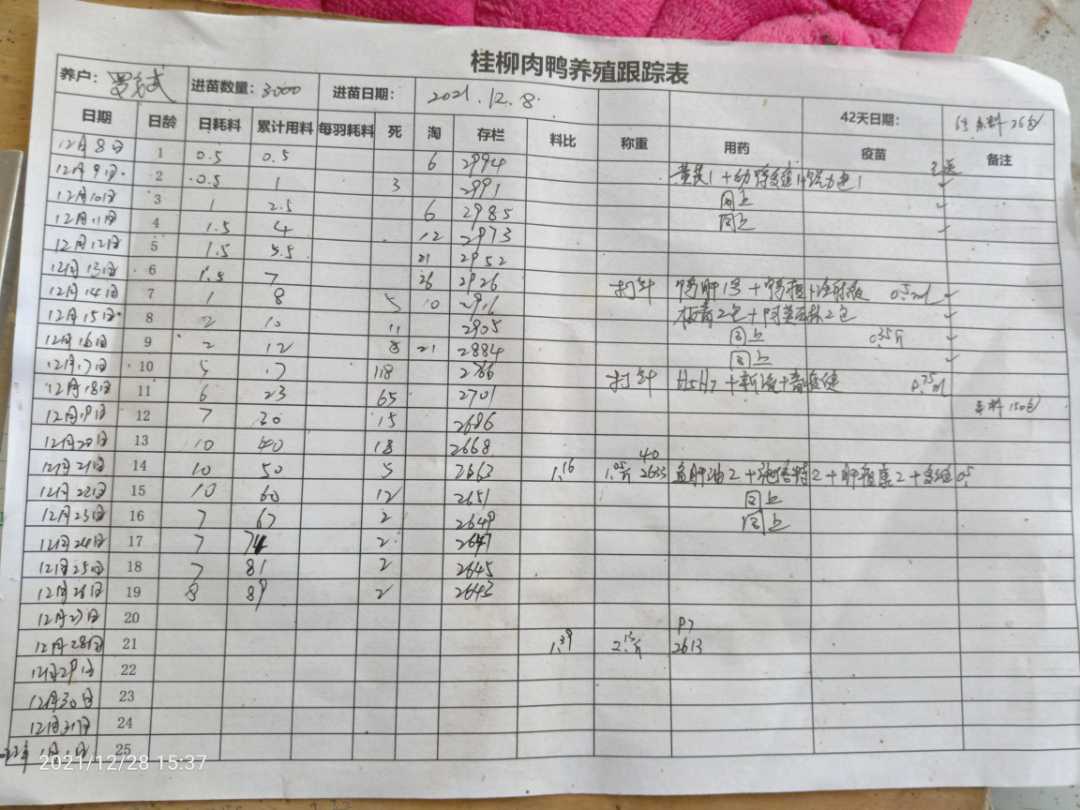 桂柳肉鸭养殖跟踪表
养户： 进苗数量：3000 进苗日期： 2021.12.8. 42天日期：
日期 日龄 日耗料 累计用料 每羽耗料 死 淘 存栏 料比 称重 用药 疫苗 备注
12月8日 1 0.5 0.5 6 2994
12月9日 2 0.5 1 3 2991 ✓
12月10日 3 1 2.5 6 2985 同上 ✓
12月11日 4 1.5 4 12 2973 同上 ✓
12月12日 5 1.5 5.5 21 2952
12月13日 6 1.5 7 26 2926
12月14日 7 1 8 5 10 2911 打针 0.5ml ✓
12月15日 8 2 10 11 2905 ✓
12月16日 9 2 12 8 21 2884 同上 0.35斤 ✓
12月17日 10 5 17 118 2766 同上 ✓
12月18日 11 6 23 65 2701 打针 H5H7
12月19日 12 7 30 15 2686
12月20日 13 10 40 18 2668
12月21日 14 10 50 5 2663 1.16 1.05斤 40 2633
12月22日 15 10 60 12 2651 同上
12月23日 16 7 67 2 2649 同上
12月24日 17 7 74 2 2647
12月25日 18 7 81 2 2645
12月26日 19 8 89 2 2643
12月27日 20 P7
12月28日 21 1.39 2.13斤 2613
12月29日 22
12月30日 23
12月31日 24
1月1日 25
2021/12/28 15:37